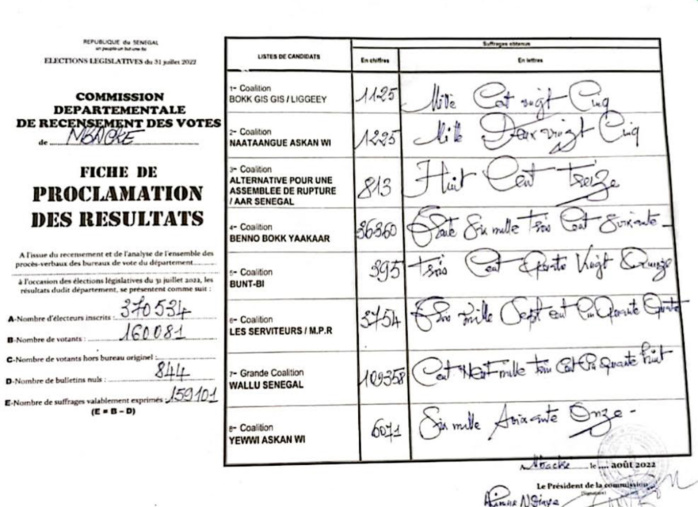 REPUBLIQUE du SENEGAL
ELECTIONS LEGISLATIVES du 31 juillet 2022
COMMISSION
DEPARTEMENTALE
DE RECENSEMENT DES VOTES
de MBACKE
FICHE DE
PROCLAMATION
DES RESULTATS
A l'issue du recensement et de l'analyse de l'ensemble des
procès-verbaux des bureaux de vote du département
à l'occasion des élections législatives du 31 juillet 2022, les
résultats dudit département, se présentent comme suit :
A-Nombre d'électeurs inscrits : 370534
B-Nombre de votants : 160081
C-Nombre de votants hors bureau originel :
D-Nombre de bulletins nuls : 844
E-Nombre de suffrages valablement exprimés 159101
(E = B – D)
LISTES DE CANDIDATS
Suffrages obtenus
En chiffres
En lettres
1re Coalition
BOKK GIS GIS / LIGGEEY
1125
Mille Cent vingt Cinq
2e Coalition
NAATAANGUE ASKAN WI
1225
Mille Deux vingt Cinq
3e Coalition
ALTERNATIVE POUR UNE
ASSEMBLEE DE RUPTURE
/ AAR SENEGAL
813
Huit Cent Treize
4e Coalition
BENNO BOKK YAAKAAR
36360
Six mille trois Cent Soixante
5e Coalition
BUNT-BI
395
Trois Cent Quatre Vingt Quinze
6e Coalition
LES SERVITEURS / M.P.R
3754
mille Sept cent Cinquante Quatre
7e Grande Coalition
WALLU SENEGAL
109358
Cent Neuf mille trois Cent Cinquante huit
8e Coalition
YEWWI ASKAN WI
6071
Six mille Soixante Onze
A Mbacké le août 2022
Le Président de la commission
(Signature)